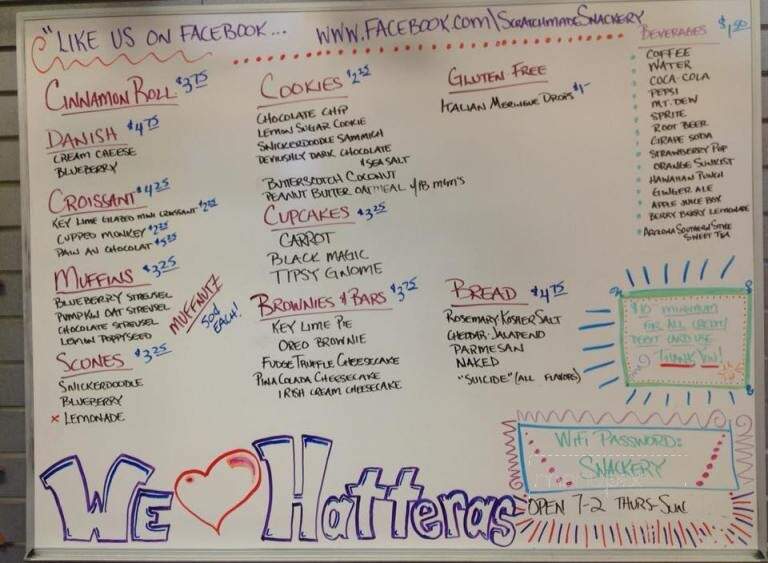 "LIKE US ON FACEBOOK... WWW.FACEBOOK.COM\SCRATCHMADESNACKERY
CINNAMON ROLL $3.75
DANISH $4.75
CREAM CHEESE
BLUEBERRY
CROISSANT $4.25
KEY LIME GLAZED MINI CROISSANT $2.25
CUPPED MONKEY $2.25
PAIN AU CHOCOLAT $5.25
MUFFINS $3.25
BLUEBERRY STREUSEL
PUMPKIN OAT STREUSEL
CHOCOLATE STREUSEL
LEMON POPPYSEED
MUFFNUTZ
50¢
EACH!
SCONES $3.25
SNICKERDOODLE
BLUEBERRY
x LEMONADE
COOKIES $2.25
CHOCOLATE CHIP
LEMON SUGAR COOKIE
SNICKERDOODLE SAMMICH
DEVILISHLY DARK CHOCOLATE
& SEA SALT
BUTTERSCOTCH COCONUT
PEANUT BUTTER OATMEAL w/PB M&M's
CUPCAKES $3.25
CARROT
BLACK MAGIC
TIPSY GNOME
BROWNIES & BARS $3.75
KEY LIME PIE
OREO BROWNIE
FUDGE TRUFFLE CHEESECAKE
PINA COLADA CHEESECAKE
IRISH CREAM CHEESECAKE
GLUTEN FREE
ITALIAN MERINGUE DROPS $1-
BREAD $4.75
ROSEMARY KOSHER SALT
CHEDDAR-JALAPENO
PARMESAN
NAKED
"SUICIDE" (ALL FLAVORS)
BEVERAGES $1.50
COFFEE
WATER
COCA-COLA
PEPSI
MT. DEW
SPRITE
ROOT BEER
GRAPE SODA
STRAWBERRY POP
ORANGE SUNKIST
HAWAIIAN PUNCH
GINGER ALE
APPLE JUICE BOX
BERRY BERRY LEMONADE
ARIZONA SOUTHERN STYLE
SWEET TEA
$10 MINIMUM
FOR ALL CREDIT/
DEBIT CARD USE
THANK YOU!
WIFI PASSWORD:
SNACKERY
OPEN 7-2 THURS-SUN
WE Hatteras